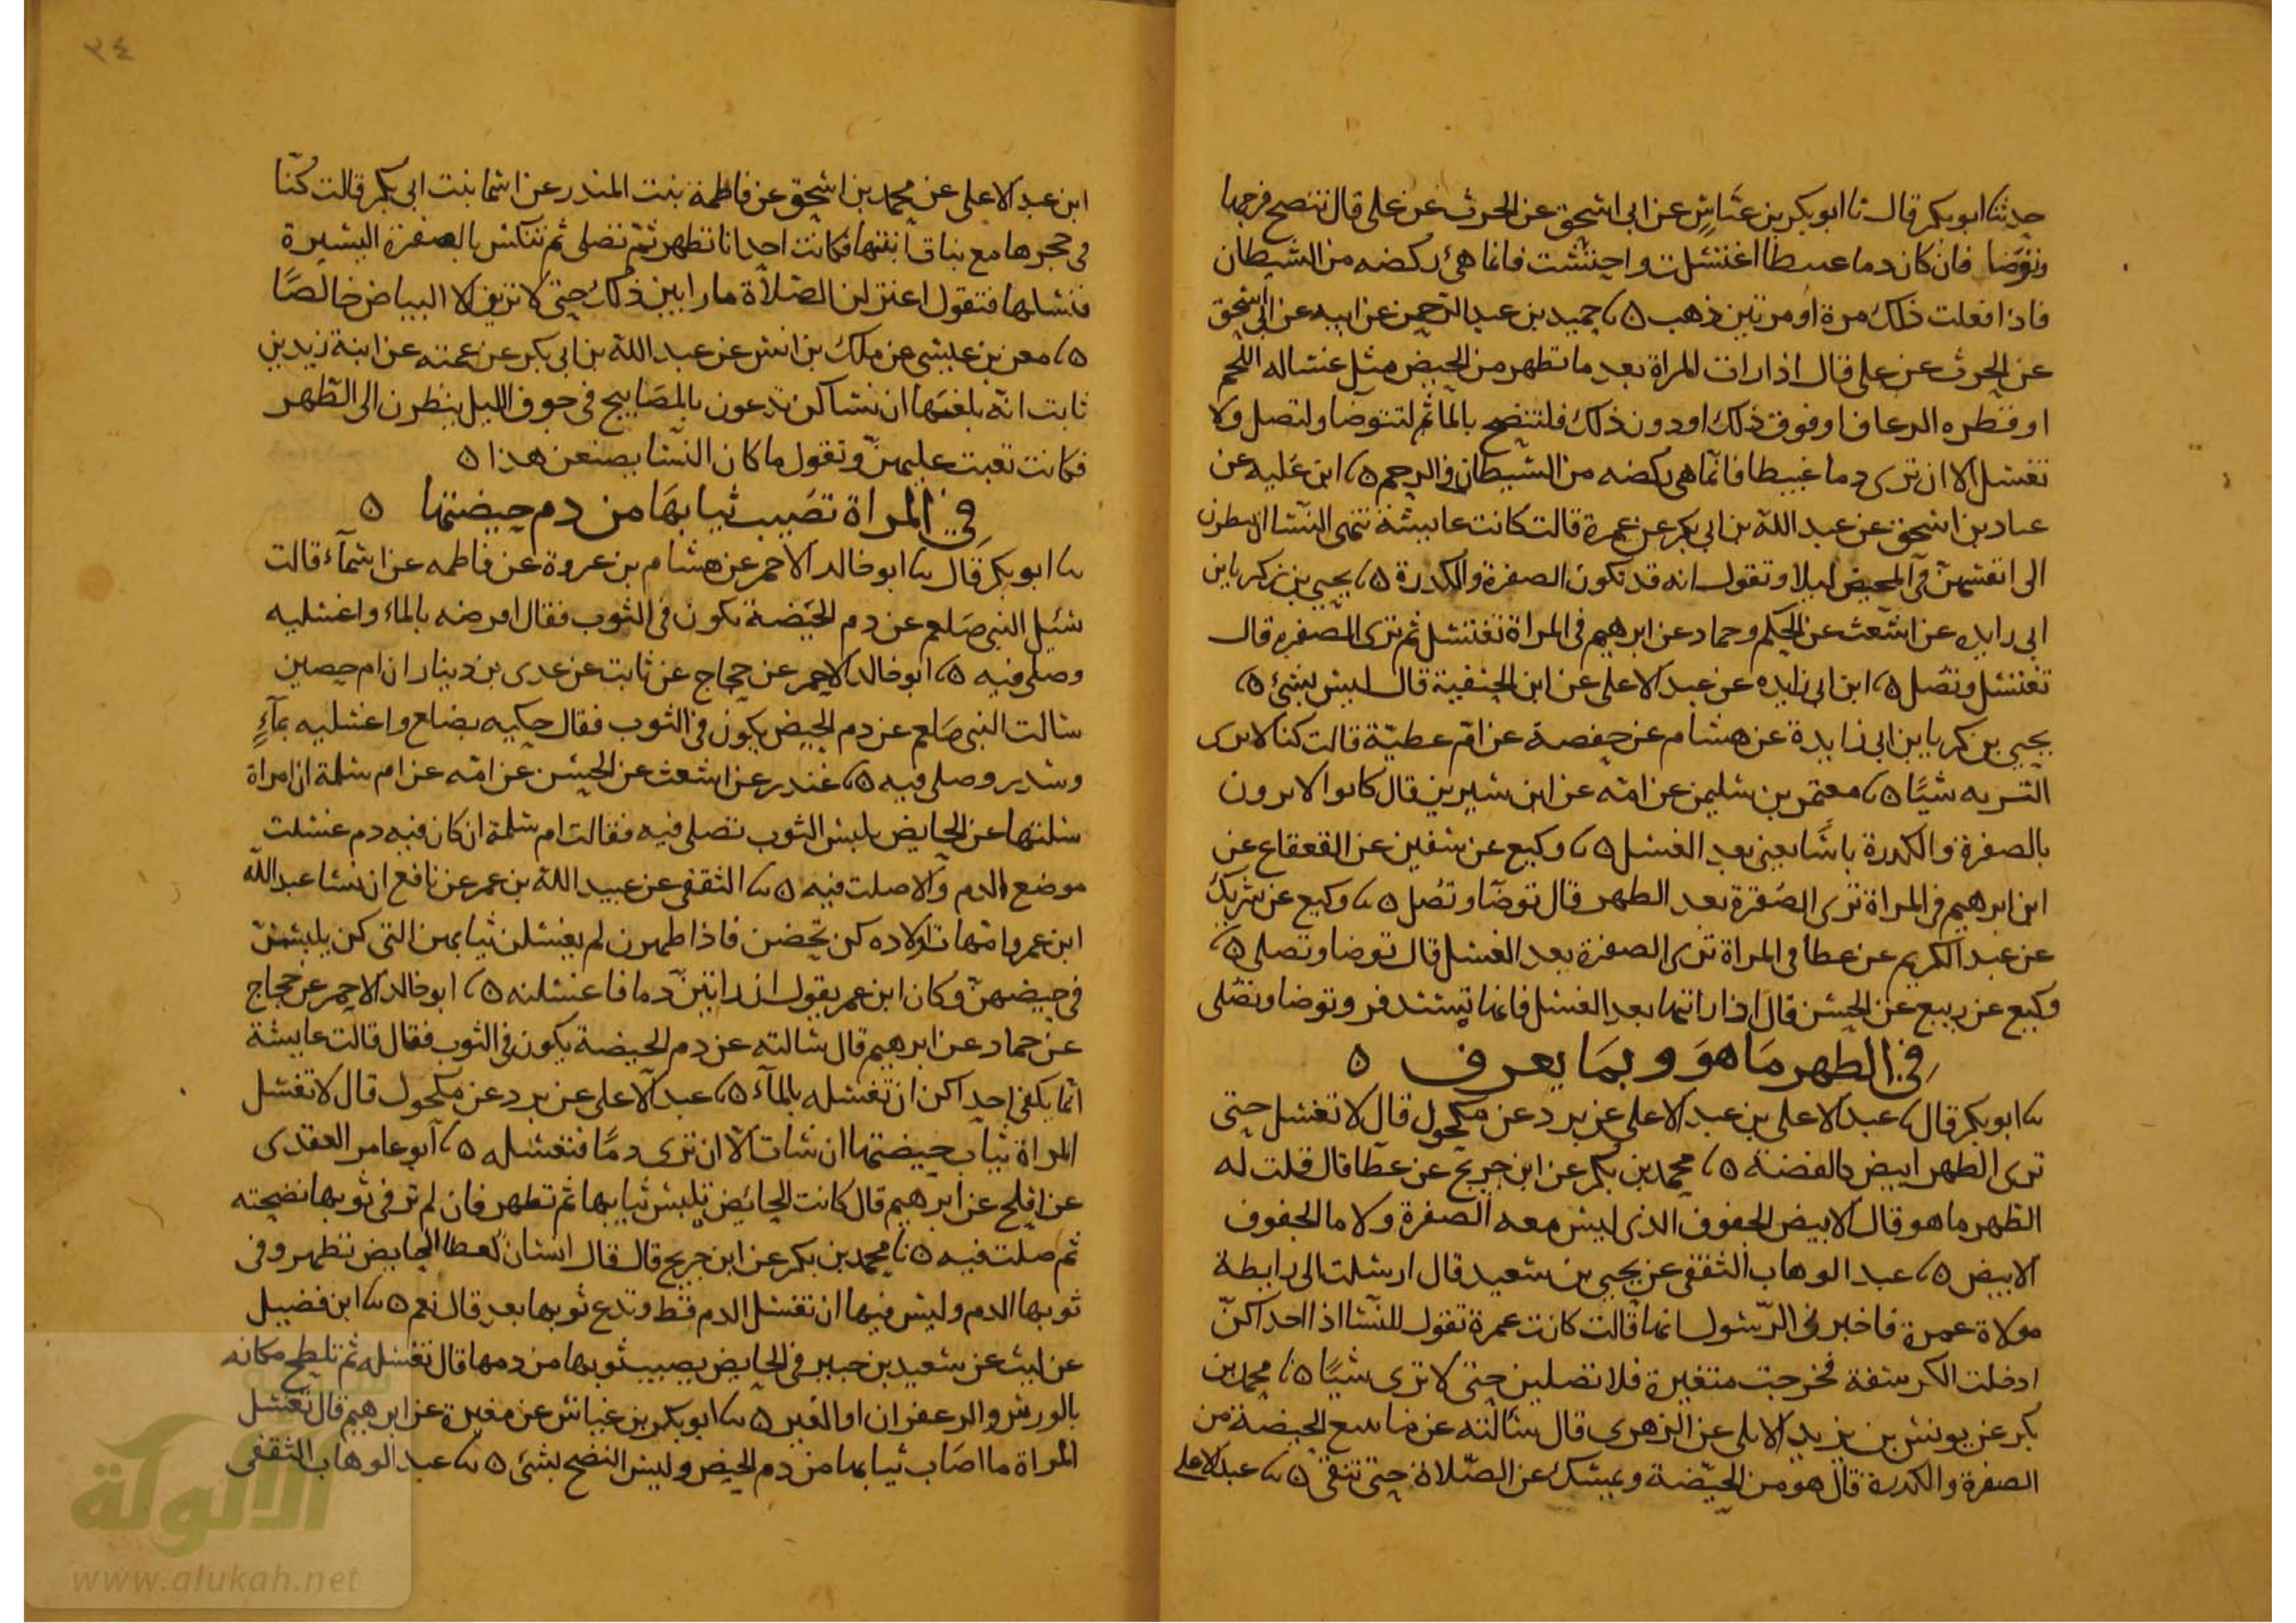 حدثنا ابو بكر قال نا ابو بكر بن عياش عن ابى اسحق عن الحرث عن على قال تنضح فرجها
وتوضا فان كان دما عبيطا اغتسلت واحتشت فانما هى ركضه من الشيطان
فاذا فعلت ذلك مرة او مرتين ذهب ٥ نا حميد بن عبد الرحمن عن ابيه عن ابى اسحق
عن الحرث عن على قال اذا رات المراة بعد ما تطهر من الحيض مثل غساله اللحم
او قطره الرعاف او فوق ذلك او دون ذلك فلتنضح بالما ثم لتتوضا ولتصل ولا
تغتسل الا ان ترى دما غبيطا فانما هى ركضه من الشيطان فى الرحم ٥ نا ابن علیه عن
عباد بن اسحق عن عبد الله بن ابى بكر عن عمرة قالت كانت عايشة تنهى النسا ان ينظرن
الى انفسهن فى المحيض ليلا وتقول انه قد تكون الصفرة والكدرة ٥ نا يحيى بن زكريا بن
ابى زايده عن اشعث عن الحكم وحماد عن ابرهيم فى المراة تغتسل ثم ترى الصفره قال
تغتسل وتصل ٥ نا ابن ابى زايده عن عبد الاعلى عن ابن الحنفية قال ليس بشئ ٥ نا
يحيى بن زكريا بن ابى زايدة عن هشام عن حفصة عن ام عطية قالت كنا لا نرى
التريه شيًا ٥ نا معتمر بن سليمن عن امه عن ابن سيرين قال كانوا لا يرون
بالصفرة والكدرة باسًا يعنى بعد الغسل ٥ نا وكيع عن سفين عن القعقاع عن
ابن ابرهيم فى المراة ترى الصفرة بعد الطهر قال توضا وتصل ٥ نا وكيع عن شريك
عن عبد الكريم عن عطا فى المراة ترى الصفرة بعد الغسل قال توضا وتصلى ٥ نا
وكيع عن ربيع عن الحسن قال اذا راتها بعد الغسل فانها تستذفر وتوضا وتصلى
فى الطهر ما هو وبما يعرف ٥
نا ابو بكر قال نا عبد الاعلى بن عبد الاعلى عن برد عن مكحول قال لا تغتسل حتى
ترى الطهر ابيض كالفضة ٥ نا محمد بن بكر عن ابن جريج عن عطا قال قلت له
الطهر ما هو قال الابيض الجفوف الذى ليس معه الصفرة ولا ما الجفوف
الابيض ٥ نا عبد الوهاب الثقفى عن يحيى بن سعيد قال ارسلت الى رابطة
مولاة عمرة فاخبرنى الرسول انها قالت كانت عمرة تقول للنسا اذا احداكن
ادخلت الكرسفة فخرجت متغيرة فلا تصلين حتى لا ترى شيًا ٥ نا محمد بن
بكر عن يونس بن يزيد الايلى عن الزهرى قال سالته عن ما يتبع الحيضة من
الصفرة والكدرة قال هو من الحيضة وتمسك عن الصلاة حتى تنقى ٥ نا عبد الاعلى
٣٤
ابن عبد الاعلى عن محمد بن اسحق عن فاطمة بنت المنذر عن اسما بنت ابى بكر قالت كنا
فى حجرها مع بنات ابنتها فكانت احدانا تطهر ثم تصلى ثم تنكس بالصفرة اليسيرة
فنسلها فتقول اعتزلن الصلاة ما رايتن ذلك حتى لا ترين الا البياض خالصًا
٥ نا معن بن عيسى عن ملك بن انس عن عبد الله بن ابى بكر عن عمته عن ابنة زيد بن
ثابت انه بلغها ان نسا كن يدعون بالمصابيح فى جوف الليل ينظرن الى الطهر
فكانت تعيب عليهن وتقول ما كان النسا يصنعن هذا ٥
فى المراة تصيب ثيابها من دم حيضتها ٥
نا ابو بكر قال نا ابو خالد الاحمر عن هشام بن عروة عن فاطمه عن اسمآء قالت
سئيل النبى صلعم عن دم الحيضة تكون فى الثوب فقال اقرضه بالماء واغسليه
وصلى فيه ٥ نا ابو خالد الاحمر عن حجاج عن ثابت عن عدى بن دينار ان ام حصين
سالت النبى صلعم عن دم الحيض يكون فى الثوب فقال حكيه بضلع واغسليه بمآءٍ
وسدر وصلى فيه ٥ نا غندر عن اشعث عن الحسن عن امه عن ام سلمة ان امراة
سئلتها عن الحايض يلبس الثوب تصلى فيه فقالت ام سلمة ان كان فيه دم غسلت
موضع الدم والا صلت فيه ٥ نا الثقفى عن عبيد الله بن عمر عن نافع ان نسا عبد الله
ابن عمر وامهات اولاده كن يحضن فاذا طهرن لم يغسلن ثيابهن التى كن يلبسن
فى حيضهن وكان ابن عمر يقول ان رايتن دما فاغسلنه ٥ نا ابو خالد الاحمر عن حجاج
عن حماد عن ابرهيم قال سالته عن دم الحيضة يكون فى الثوب فقال قالت عايشة
انما يكفى احداكن ان تغسله بالمآء ٥ نا عبد الاعلى عن برد عن مكحول قال لا تغسل
المراة ثياب حيضتها ان شات الا ان ترى دمًا فتغسله ٥ نا ابو عامر العقدى
عن افلح عن ابرهيم قال كانت الحائض تلبس ثيابها ثم تطهر فان لم تر فى ثوبها نضحته
ثم صلت فيه ٥ نا محمد بن بكر عن ابن جريج قال قال انسان لعطا الحايض تطهر وفى
ثوبها الدم وليس فيها ان تغسل الدم قط وتدع ثوبها بعد قال نعم ٥ نا ابن فضيل
عن ليث عن سعيد بن جبير فى الحايض يصيب ثوبها من دمها قال تغسله ثم تلطخ مكانه
بالورس والزعفران او العنبر ٥ نا ابو بكر بن عياش عن مغيرة عن ابرهيم قال تغسل
المراة ما اصاب ثيابها من دم الحيض وليس النضح بشئ ٥ نا عبد الوهاب الثقفى
شبكة
الألوكة
www.alukah.net